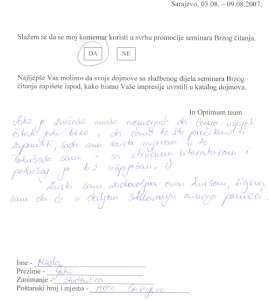 Sarajevo, 03.08. – 09.08.2007.
Slažem se da se moj komentar koristi u svrhu promocije seminara Brzog čitanja.
DA NE
Najljepše Vas molimo da svoje dojmove sa službenog dijela seminara Brzog
čitanja zapišete ispod, kako bismo Vaše impresije uvrstili u katalog dojmova.
In Optimum team
Iako je zvučalo malo nemoguće da ćemo uspjeti
čitati tako brzo, a da ćemo to što pročitamo i
zapamtiti, sada sam zaista uvjerena u to.
Pokušala sam i sa stručnom literaturom i
pokušaj je bio uspješan :)
Zaista sam zadovoljna ovim kursom, sigurna
sam da će u daljem školovanju mnogo pomoći.
Ime -
Prezime -
Zanimanje - studentica
Poštanski broj i mjesto - 71000 Sarajevo